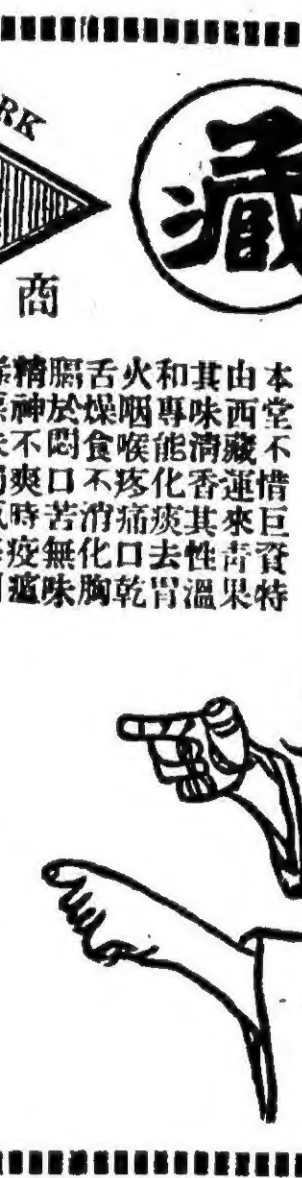 藏
RK
商
本堂不惜巨資特
由西藏蓮來青果
其味清香其性溫
和專能化痰去胃
火咽喉疼痛口乾
舌燥食不消化胸
膈於悶口苦無味
精神不爽時疫瘟